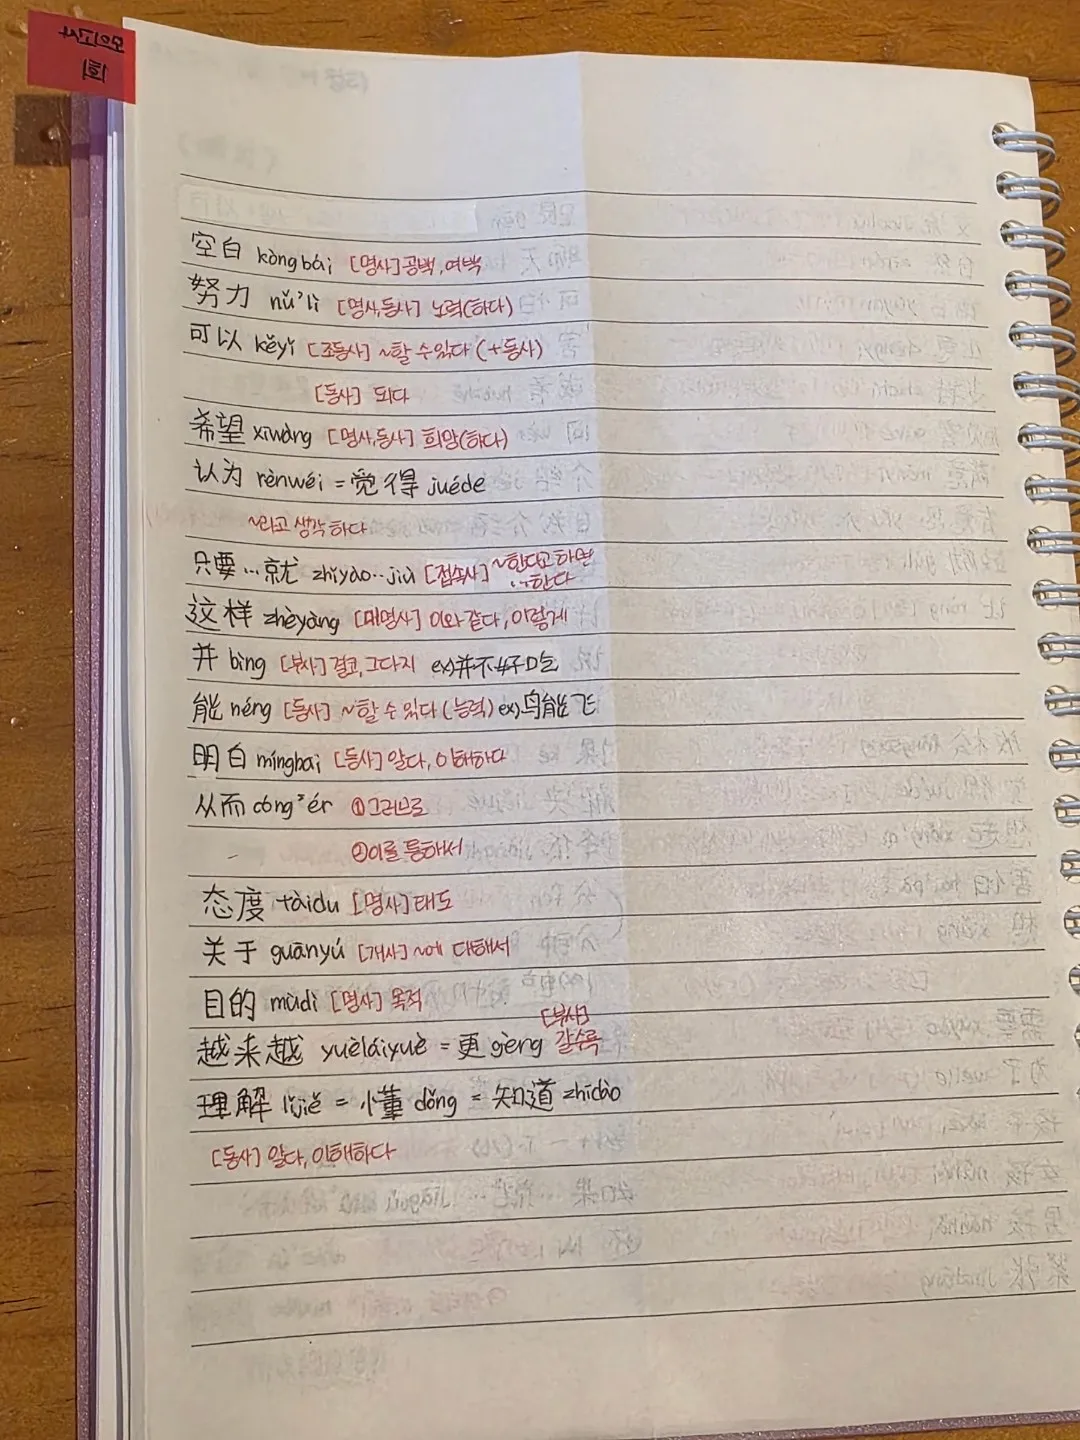 모의고사
1회
空白 kòngbái [명사] 공백, 여백
努力 nǔ'lì [명사,동사] 노력(하다)
可以 kěyǐ [조동사] ~할 수 있다 (+동사)
[동사] 되다
希望 xīwàng [명사,동사] 희망(하다)
认为 rènwéi = 觉得 juéde
~라고 생각하다
只要...就 zhǐyào...jiù [접속사] ~한다고 하면
...한다
这样 zhèyàng [대명사] 이와 같다, 이렇게
并 bìng [부사] 결코, 그다지 ex)并不好吃
能 néng [동사] ~할 수 있다 (능력) ex)鸟能飞
明白 míngbai [동사] 알다, 이해하다
从而 cóng'ér ①그러므로
②이를 통해서
态度 tàidu [명사] 태도
关于 guānyú [개사] ~에 대해서
目的 mùdì [명사] 목적
越来越 yuèláiyuè = 更 gèng [부사] 갈수록
理解 lǐjiě = 懂 dǒng = 知道 zhīdào
[동사] 알다, 이해하다